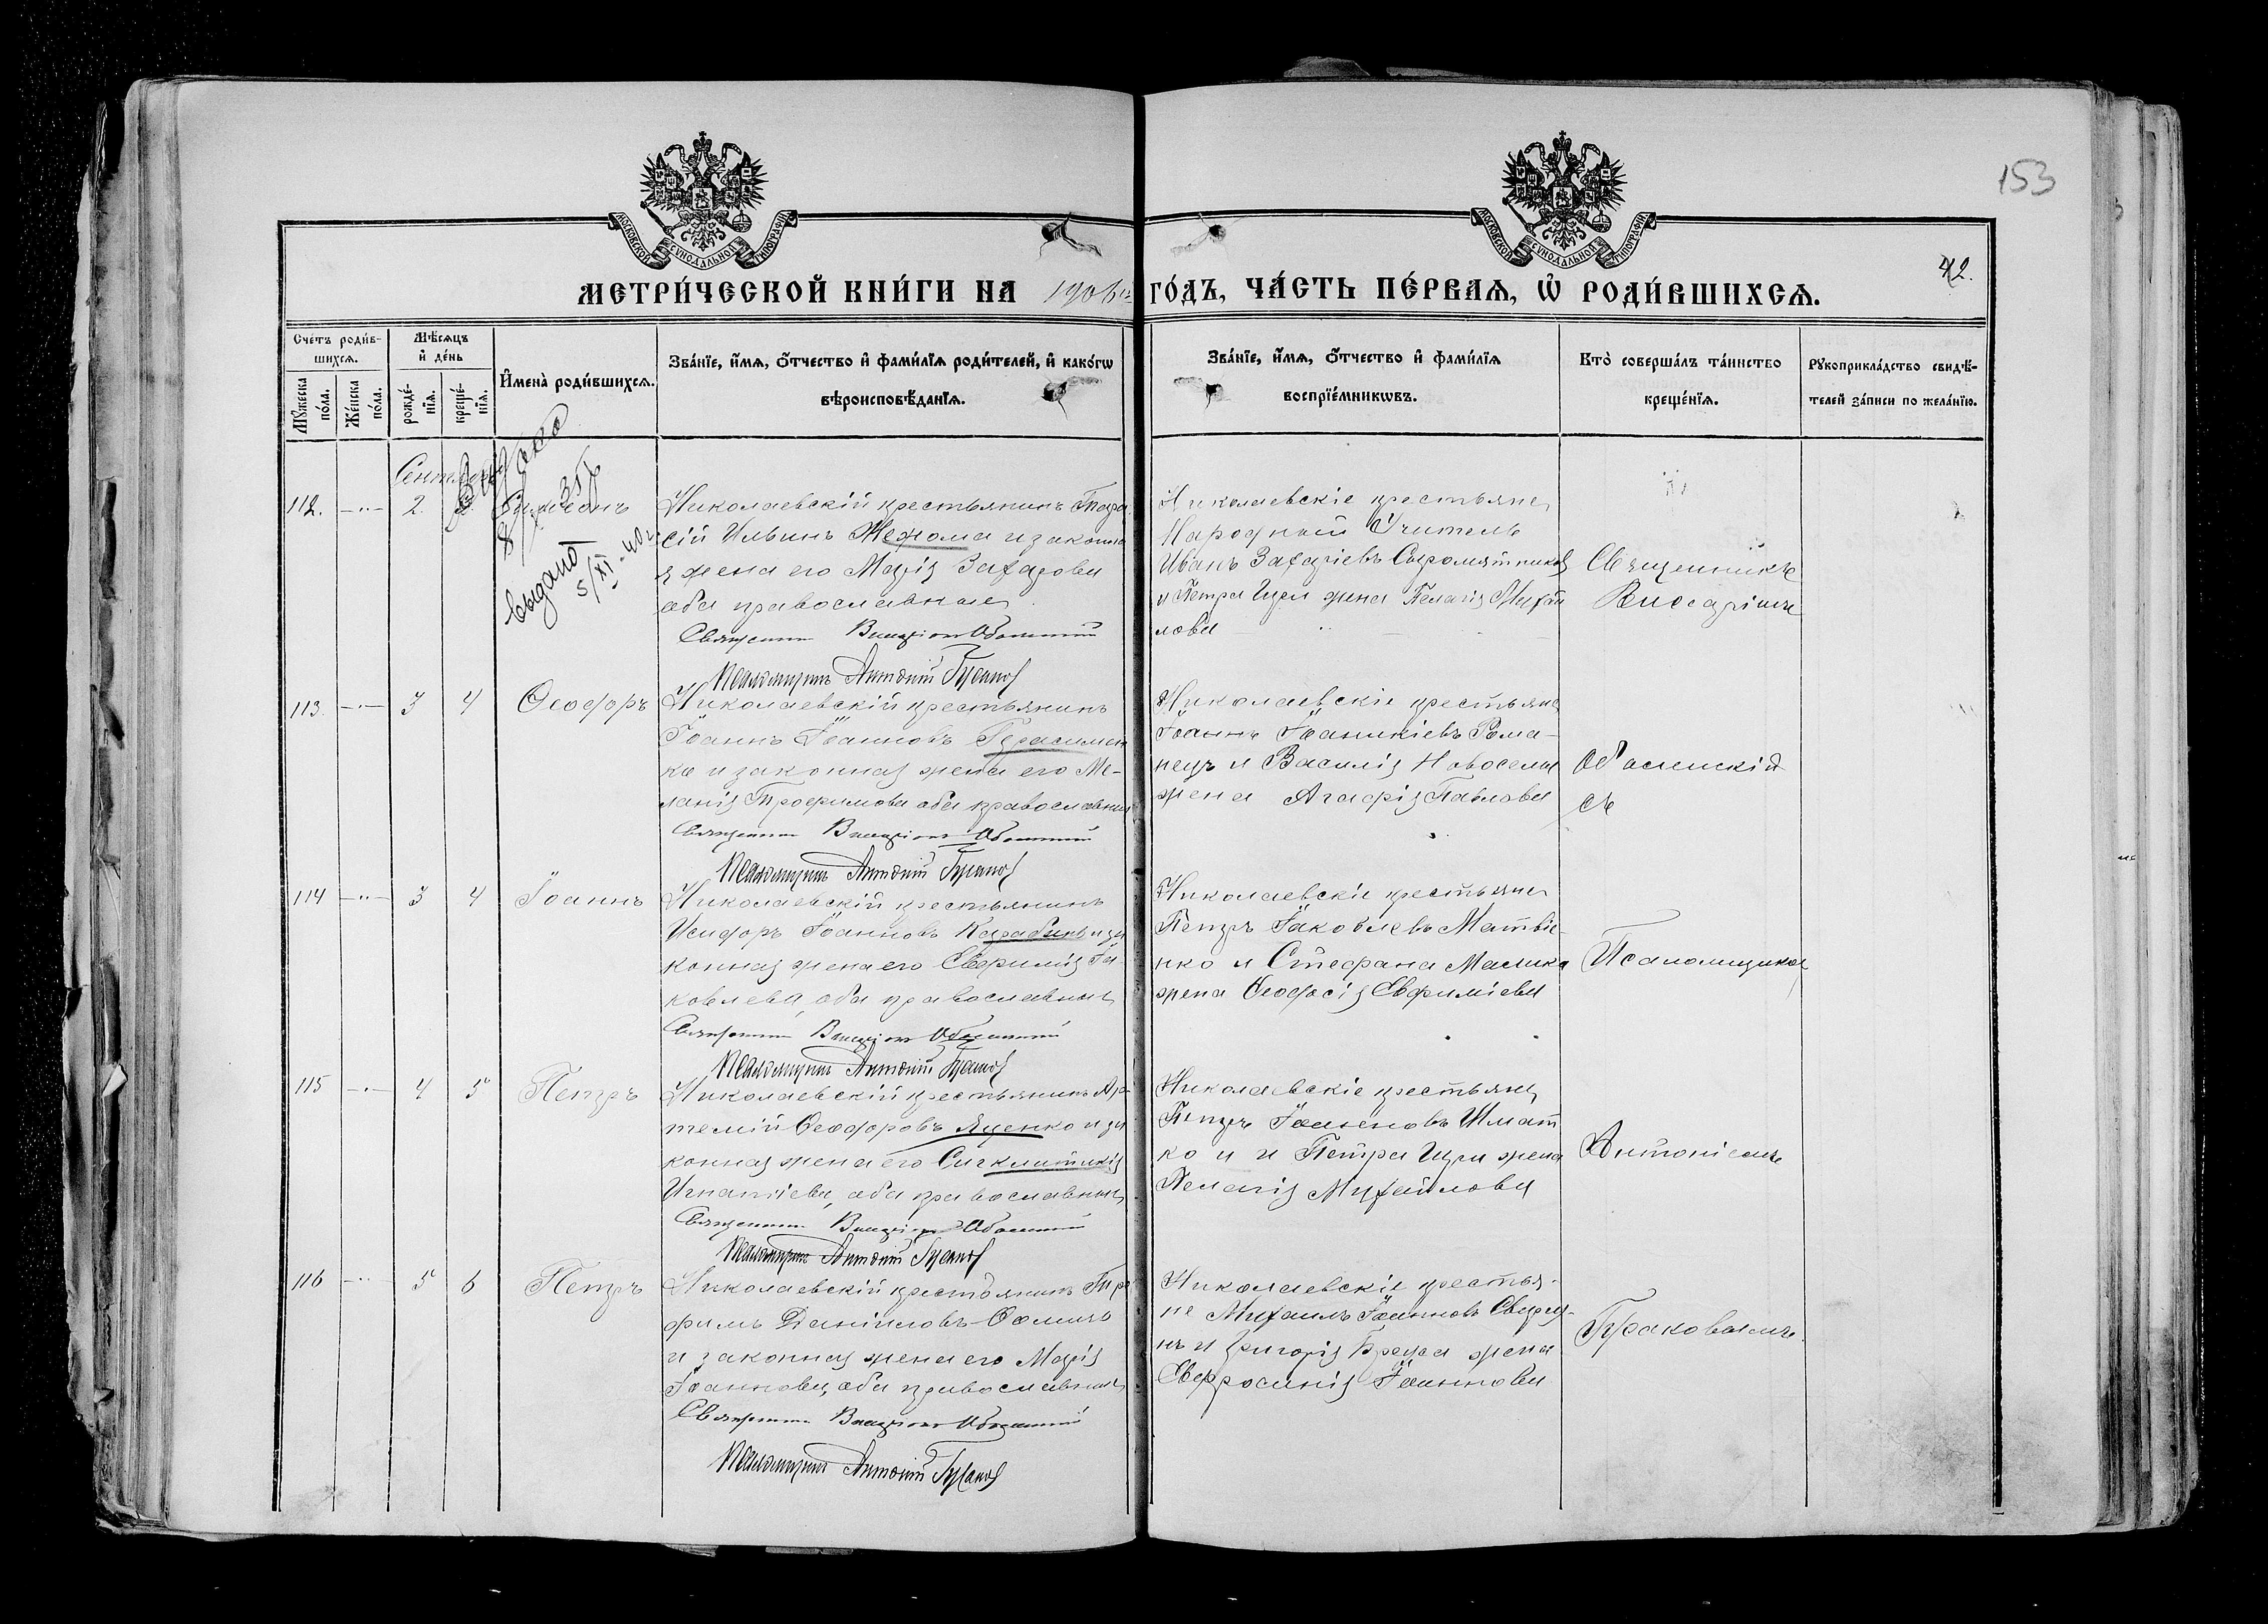 153
МОСКОВСКОЙ СѴНОДАЛЬНОЙ ТИПОГРАФІИ
МОСКОВСКОЙ СѴНОДАЛЬНОЙ ТИПОГРАФІИ
42.
МЕТРИ́ЧЕСКОЙ КНИ́ГИ НА 1906 ГО́ДЪ, ЧА́СТЬ ПЕ́РВАЯ, Ѡ҆ РОДИ́ВШИХСЯ.
Сче́тъ роди́в-
шихся.
Мѣ́сяцъ
и҆ де́нь
Мꙋ́жеска
по́ла.
Же́нска
по́ла.
рожде́-
нїя.
креще́-
нїя.
И҆мена̀ роди́вшихся.
Зва́нїе, и҆́мя, ѻ҆́тчество и҆ фами́лїя роди́телей, и҆ како́гѡ
вѣроисповѣ́данїя.
Зва́нїе, и҆́мя, ѻ҆́тчество и҆ фами́лїя
воспрїе́мникѡвъ.
Кто̀ соверша́лъ та́инство
креще́нїя.
Рꙋкоприкла́дство свидѣ́-
телей за́писи по жела́нїю.
Сентябрь
Выдано
5/XI-40г.
112. 2.
Николаевскій крестьянинъ Тара
сій Ильинъ и законна
я жена его Марія Захарова
оба православные
Священник Виссаріон Оболенский
Псаломщикъ Антоній
Николаевскіе крестьяне
Народный Учитель
Иванъ Захаріевъ Сыромятников
и Петра жена Пелагія Михай
лова
Священникъ
Виссаріонъ
113. 3 4 Ѳеодоръ
Николаевскій крестьянинъ
Іоаннъ Іоанновъ Герасимен
ко и законная жена его Ме-
ланія Трофимова оба православные
Священник Виссаріон Оболенский
Псаломщикъ Антоній
Николаевскіе крестьяне
Іоаннъ Іоаникіевъ Рома-
нецъ и Василія Новосела
жена Агафія Павлова
Оболенскій
съ
114 3 4 Іоаннъ
Николаевскій крестьянинъ
Исидоръ Іоанновъ и за
конная жена его Евфимія Іа-
ковлева, оба православные
Священник Виссаріон Оболенский
Псаломщикъ Антоній
Николаевскіе крестьяне
Петръ Іаковлевъ Матвіе-
нко и Стефана Малика
жена Ѳеодосія Евфиміева
Псаломщикомъ
115 4 5 Петръ
Николаевскій крестьянинъ Ар-
темій Ѳеодоровъ Яценко и за
конная жена его Сигклитикія
Игнатіева, оба православные
Священник Виссаріон Оболенский
Псаломщикъ Антоній
Николаевскіе крестьяне
Петръ Шмат
ко и и Петра жена
Пелагія Михайлова
Антоніемъ
116 5 6 Петръ
Николаевскій крестьянинъ Тро
фимъ Даніиловъ
и законная жена его Марія
Іоаннова, оба православные
Священник Виссаріон Оболенский
Псаломщикъ Антоній
Николаевскіе крестья-
не Михаилъ Іоанновъ
нъ и Григорія жена
Евфросинія Іоаннова